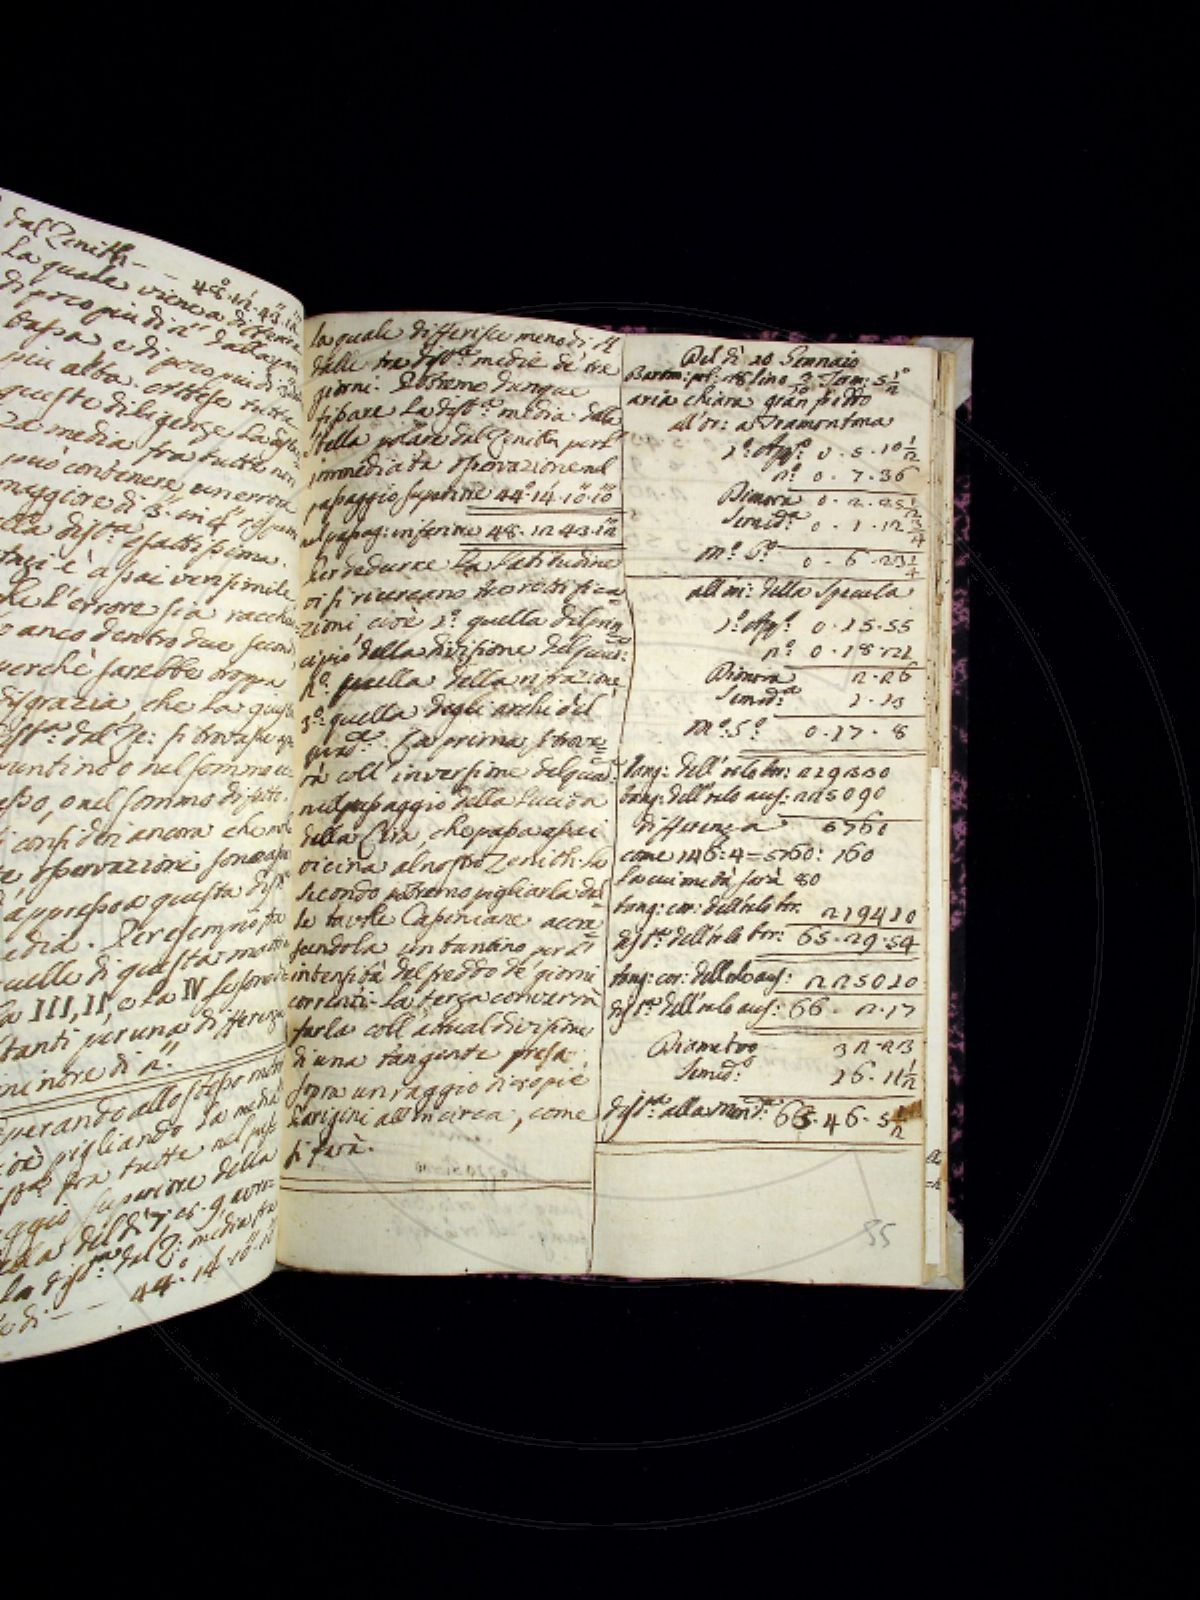 dal Zenith - - 48.°12.'43."12'''
La quale viene a differire
di poco più di 2" dalla più
bassa e di poco più di
più alta. Attese tutte
queste diligenze la distan
za media fra tutte non
può contenere un errore
maggiore di 3" in 4" rispetto
alla dist.ª esattissima.
anzi è assai verisimile
che l'errore sia racchiu
so anco dentro due secon
perchè sarebbe troppa
disgrazia, che la giusta
dist.ª dal Ze: si trovasse ap
puntino o nel sommo ec
cesso, o nel sommo difetto.
si consideri ancora che mol
te osservazioni sono assai
appresso a questa dist.ª
media. Per esempio fra
quelle di questa mattina
la III, II, e la IV sesono di
stanti per una differenza
minore di 2."
Operando allo stesso modo
cioè pigliando la media
dist.ª fra tutte nel pas
saggio superiore della
stella del dì 7, e 8. 9, avre
la dist.ª dal Z: media fra
le di - - 44.°14.'10."10'''
la quale differisce meno di
dalle tre dist.ᵉ medie de' tre
giorni. Potremo dunque
fissare la dist.ª media dalla
stella polare dal Zenith per l'
immediata osservazione nel
passaggio superiore 44.°14.'10."10'''
nel passag: inferiore 48.12.43.12
Per dedurre la latitudine
vi si ricercano tre rettifica=
zioni cioè 1.º quella del prin
cipio della divisione del quad:
2.º quella della rifrazione
3.º quella degli archi del
quad.te La prima si trove=
rà coll' inversione del qua:
nel passaggio della Lucida
della Lira che passa assai
vicina al nostro Zenith. La
secondo potremo pigliarla dal
le tavole Cassiniane accre=
scendola un tantino per l'
intensità del freddo de' giorni
correnti. La terza converrà
farla coll' attual divisione
di una tangente presa
sopra un raggio di 20 piè
Parigini all' in circa, come
si farà.
Del dì 10 Gennaio
Barom: pol: 28 lin. 2. Term: 5 1/2°
aria chiara gran freddo
all'or: a Tramontana
1.º App.º 0. 5. 10 1/2
2.º 0. 7. 36
Dimora 0. 2. 25 1/2
Semid.ª 0. 1. 12 3/4
M.º C.º 0. 6. 23 1/4
all'mi: della Specula
1.º App.º 0. 15. 55
2.º 0. 18. 21
Dimora 2. 26
Semid.ª 1. 13
M.º S.º 0. 17. 8
Tang: dell'oslo bor: 219330
tang: dell'oslo aus: 225090
differenza 5760
come 146:4=5760:160
la cui metà sarà 80
tang: cor: dell'oslo bor. 219410
dist.ª dell'oslo bor: 65. 29. 54
tang: cor: dell'oslo aus: 225010
dist.ª dell'oslo aus: 66. 2. 17
Diametro 32. 23
Semid.º 16. 11 1/2
dist.ª alla Merid.ª 65. 46. 5 1/2
55